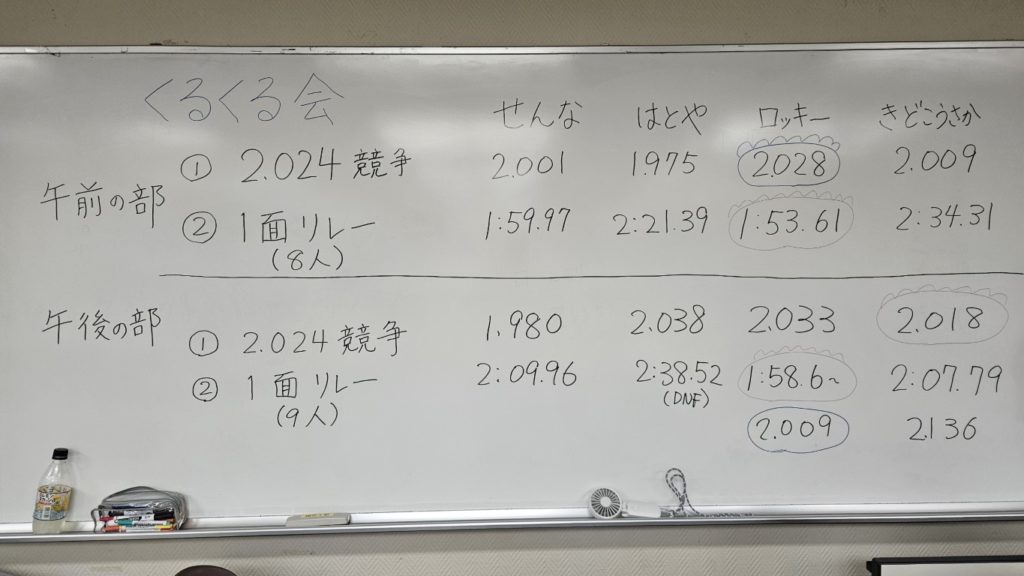 くるくる会
せんな はとや ロッキー きどこうさか
午前の部
① 2.024 競争 2.001 1.975 2.028 2.009
② 1面リレー 1:59.97 2:21.39 1:53.61 2:34.31
(8人)
午後の部
① 2.024 競争 1.980 2.038 2.033 2.018
② 1面リレー 2:09.96 2:38.52 1:58.6~ 2:07.79
(9人) (DNF)
2.009 2.136